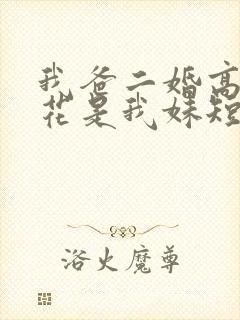 我爸二婚高
花是我妹短
浴火魔尊